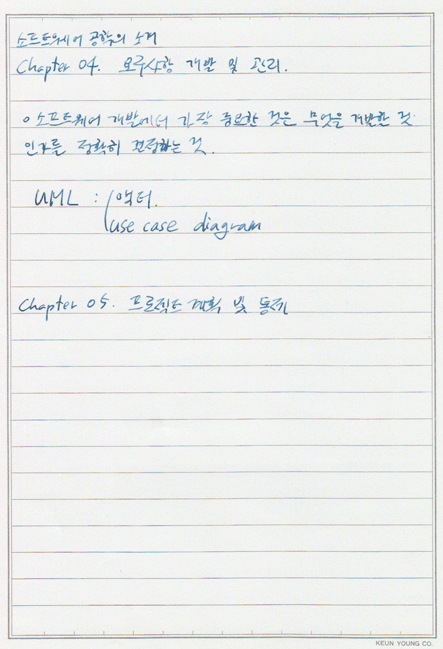 소프트웨어 공학의 소개
Chapter 04. 요구사항 개발 및 관리.
o 소프트웨어 개발에서 가장 중요한 것은 무엇을 개발할 것
인가를 정확히 결정하는 것.
UML : 액터.
use case diagram
Chapter 05. 프로젝트 계획 및 통제
KEUN YOUNG CO.